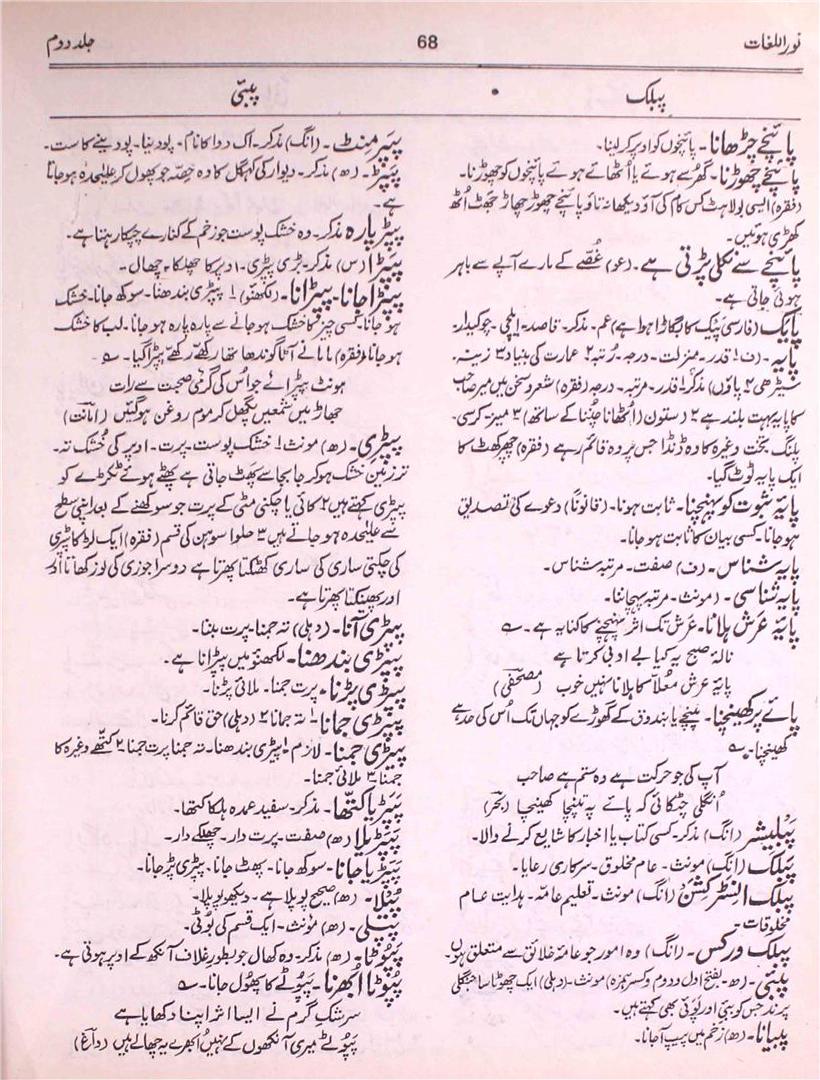 نور اللغات
68
جلد دوم
پبلک
پپڑی
پائنچے چڑھانا۔ پائنچوں کو اوپر کر لینا۔
پائنچے چھوڑنا۔ گھرسے ہوئے یا اُٹھائے ہوئے پائنچوں کو چھوڑنا۔
(فقرہ) ایسی بولاہٹ کس کام کی آؤ دیکھا نہ تاؤ پائنچے چھوڑ چھاڑ جھٹ اُٹھ
کھڑی ہوئیں۔
پائنچے سے نکلی پڑتی ہے۔ (عو) غُصّے کے مارے آپے سے باہر
ہوئی جاتی ہے۔
پایک (فارسی پَیک کا بگاڑا ہوا ہے) عم۔ مذکر۔ قاصد۔ ایلچی۔ چوکیدار۔
پایہ۔ (ف) ۱ قدر۔ منزلت۔ درجہ۔ رُتبہ ۲ عمارت کی بنیاد ۳ زینہ۔
سیڑھی ۴ پاؤں) مذکر ۱ قدر۔ مرتبہ۔ درجہ (فقرہ) شعر و سخن میں میر صاحب
کا پایہ بہت بلند ہے ۲ ستون (اُٹھانا چُننا کے ساتھ) ۳ میز۔ کرسی۔
پلنگ۔ تخت وغیرہ کا وہ ڈنڈا جس پر وہ قائم رہے (فقرہ) چھپرکھٹ کا
ایک پایہ ٹوٹ گیا۔
پایۂ ثبوت کو پہنچنا۔ ثابت ہونا۔ (قانوناً) دعوے کی تصدیق
ہو جانا۔ کسی بیان کا ثابت ہو جانا۔
پایہ شناس۔ (ف) صفت۔ مرتبہ شناس۔
پایہ شناسی۔ (مونث۔ مرتبہ پہچاننا۔
پایۂ عرش ہلانا۔ عرش تک اثر پہنچنے کا کنایہ ہے۔ ؎
نالۂ صبح یہ کیا بے ادبی کرتا ہے
پایۂ عرش معلّا کا ہلانا نہیں خوب (مصحفی)
پائے پر کھینچنا۔ پنچے یا بندوق کے گھوڑے کو جہاں تک اُس کی حد ہے
کھینچنا۔ ؎
آپ کی جو حرکت ہے وہ ستم ہے صاحب
اُنگلی چٹکائی کہ پائے پہ تپنچا کھینچا (بحر)
پَبْلِیشَر (انگ) مذکر۔ کسی کتاب یا اخبار کا شایع کرنے والا۔
پَبلک (انگ) مونث۔ عام مخلوق۔ سرکاری رعایا۔
پبلک انسٹرکیشن (انگ) مونث۔ تعلیم عامّہ۔ ہدایت عام
مخلوقات۔
پبلک ورکس۔ (انگ) وہ امور جو عامۂ خلائق سے متعلق ہوں۔
(ھ۔ بفتح اول و دوم و کسر ہمزہ) مونث۔ (دہلی) ایک چھوٹا سا جنگلی
پرند جس کو بیئی اور پوئی بھی کہتے ہیں۔
پپیانا۔ (ھ) زخم میں پیپ آ جانا۔
پپرمنٹ۔ (انگ) مذکر۔ اک دوا کا نام۔ پودینا۔ پودینے کا ست۔
پپڑ۔ (ھ) مذکر۔ دیوار کی کہگل کا وہ حِصّہ جو پھول کر علیٰحدہ ہو جاتا
ہے۔
پپڑ پارہ مذکر۔ وہ خشک پوست جو زخم کے کنارے چپکا رہتا ہے۔
پپڑا (س) مذکر۔ بڑی پپڑی۔ اوپر کا چھلکا۔ چھال۔
پپڑا جانا۔ پپڑانا۔ (لکھنؤ) ۱ پپڑی بندھنا۔ سوکھ جانا۔ خشک
ہو جانا۔ کسی چیز کا خشک ہو جانے سے پارہ پارہ ہو جانا۔ لب کا خشک
ہو جانا (فقرہ) ماما نے آٹا گوندھا تھا رکھے رکھے پپڑا گیا۔ ؎
ہونٹ پپڑائے جو اُس کی گرمیِ صحبت سے رات
جھاڑ میں شمعیں پگھل کر موم روغن ہو گئیں (امانت)
پپڑی۔ (ھ) مونث ۱ خشک پوست۔ پرت۔ اوپر کی خُشک تہ۔
تر زمین خُشک ہو کر جا بجا سے پَھٹ جاتی ہے پھٹے ہوئے ٹکڑے کو
پپڑی کہتے ہیں ۲ کائی یا چکنی مٹی کے پرت جو سوکھنے کے بعد اپنی سطح
سے علیٰحدہ ہو جاتے ہیں ۳ حلوا سوہن کی قسم (فقرہ) ایک لڑکا پپڑی
کی چکتی ساری کی ساری کُھٹکتا پھرتا ہے دوسرا جوزی کی لوز کھاتا اُ
اور پھینکتا پھرتا ہے۔
پپڑی آنا۔ (دہلی) تہ جمنا۔ پرت بننا۔
پپڑی بندھنا۔ لکھنؤ میں پپڑانا ہے۔
پپڑی پڑنا۔ پرت جمنا۔ ملائی پڑنا۔
پپڑی جمانا ۱ تہ جمانا ۲ (دہلی) حق قائم کرنا۔
پپڑی جمنا۔ لازم ۱ پپڑی بندھنا۔ تہ جمنا پرت جمنا ۲ کتّھے وغیرہ کا
جمنا ۳ ملائی جمنا۔
پپڑیا کتّھا۔ مذکر۔ سفید عمدہ ہلکا کتھا۔
پپڑیلا (ھ) صفت۔ پرت دار۔ چھلکے دار۔
پپڑیا جانا۔ سوکھ جانا۔ پھٹ جانا۔ پپڑی پڑ جانا۔
پُپْلا۔ (ھ) صحیح پوپلا ہے۔ دیکھو پوپلا۔
پپلی۔ (ھ) مونث۔ ایک قسم کی بُوٹی۔
پَپوٹا۔ (ھ) مذکر۔ وہ کھال جو بطورِ غلاف آنکھ کے اوپر ہوتی ہے۔
پَپوٹا اُبھرنا۔ پپوٹے کا پھُول جانا۔ ؎
سرشکِ گرم نے ایسا اثر اپنا دکھایا ہے
پَپوٹے میری آنکھوں کے نہیں اُبھرے یہ چھالے ہیں (داغ)